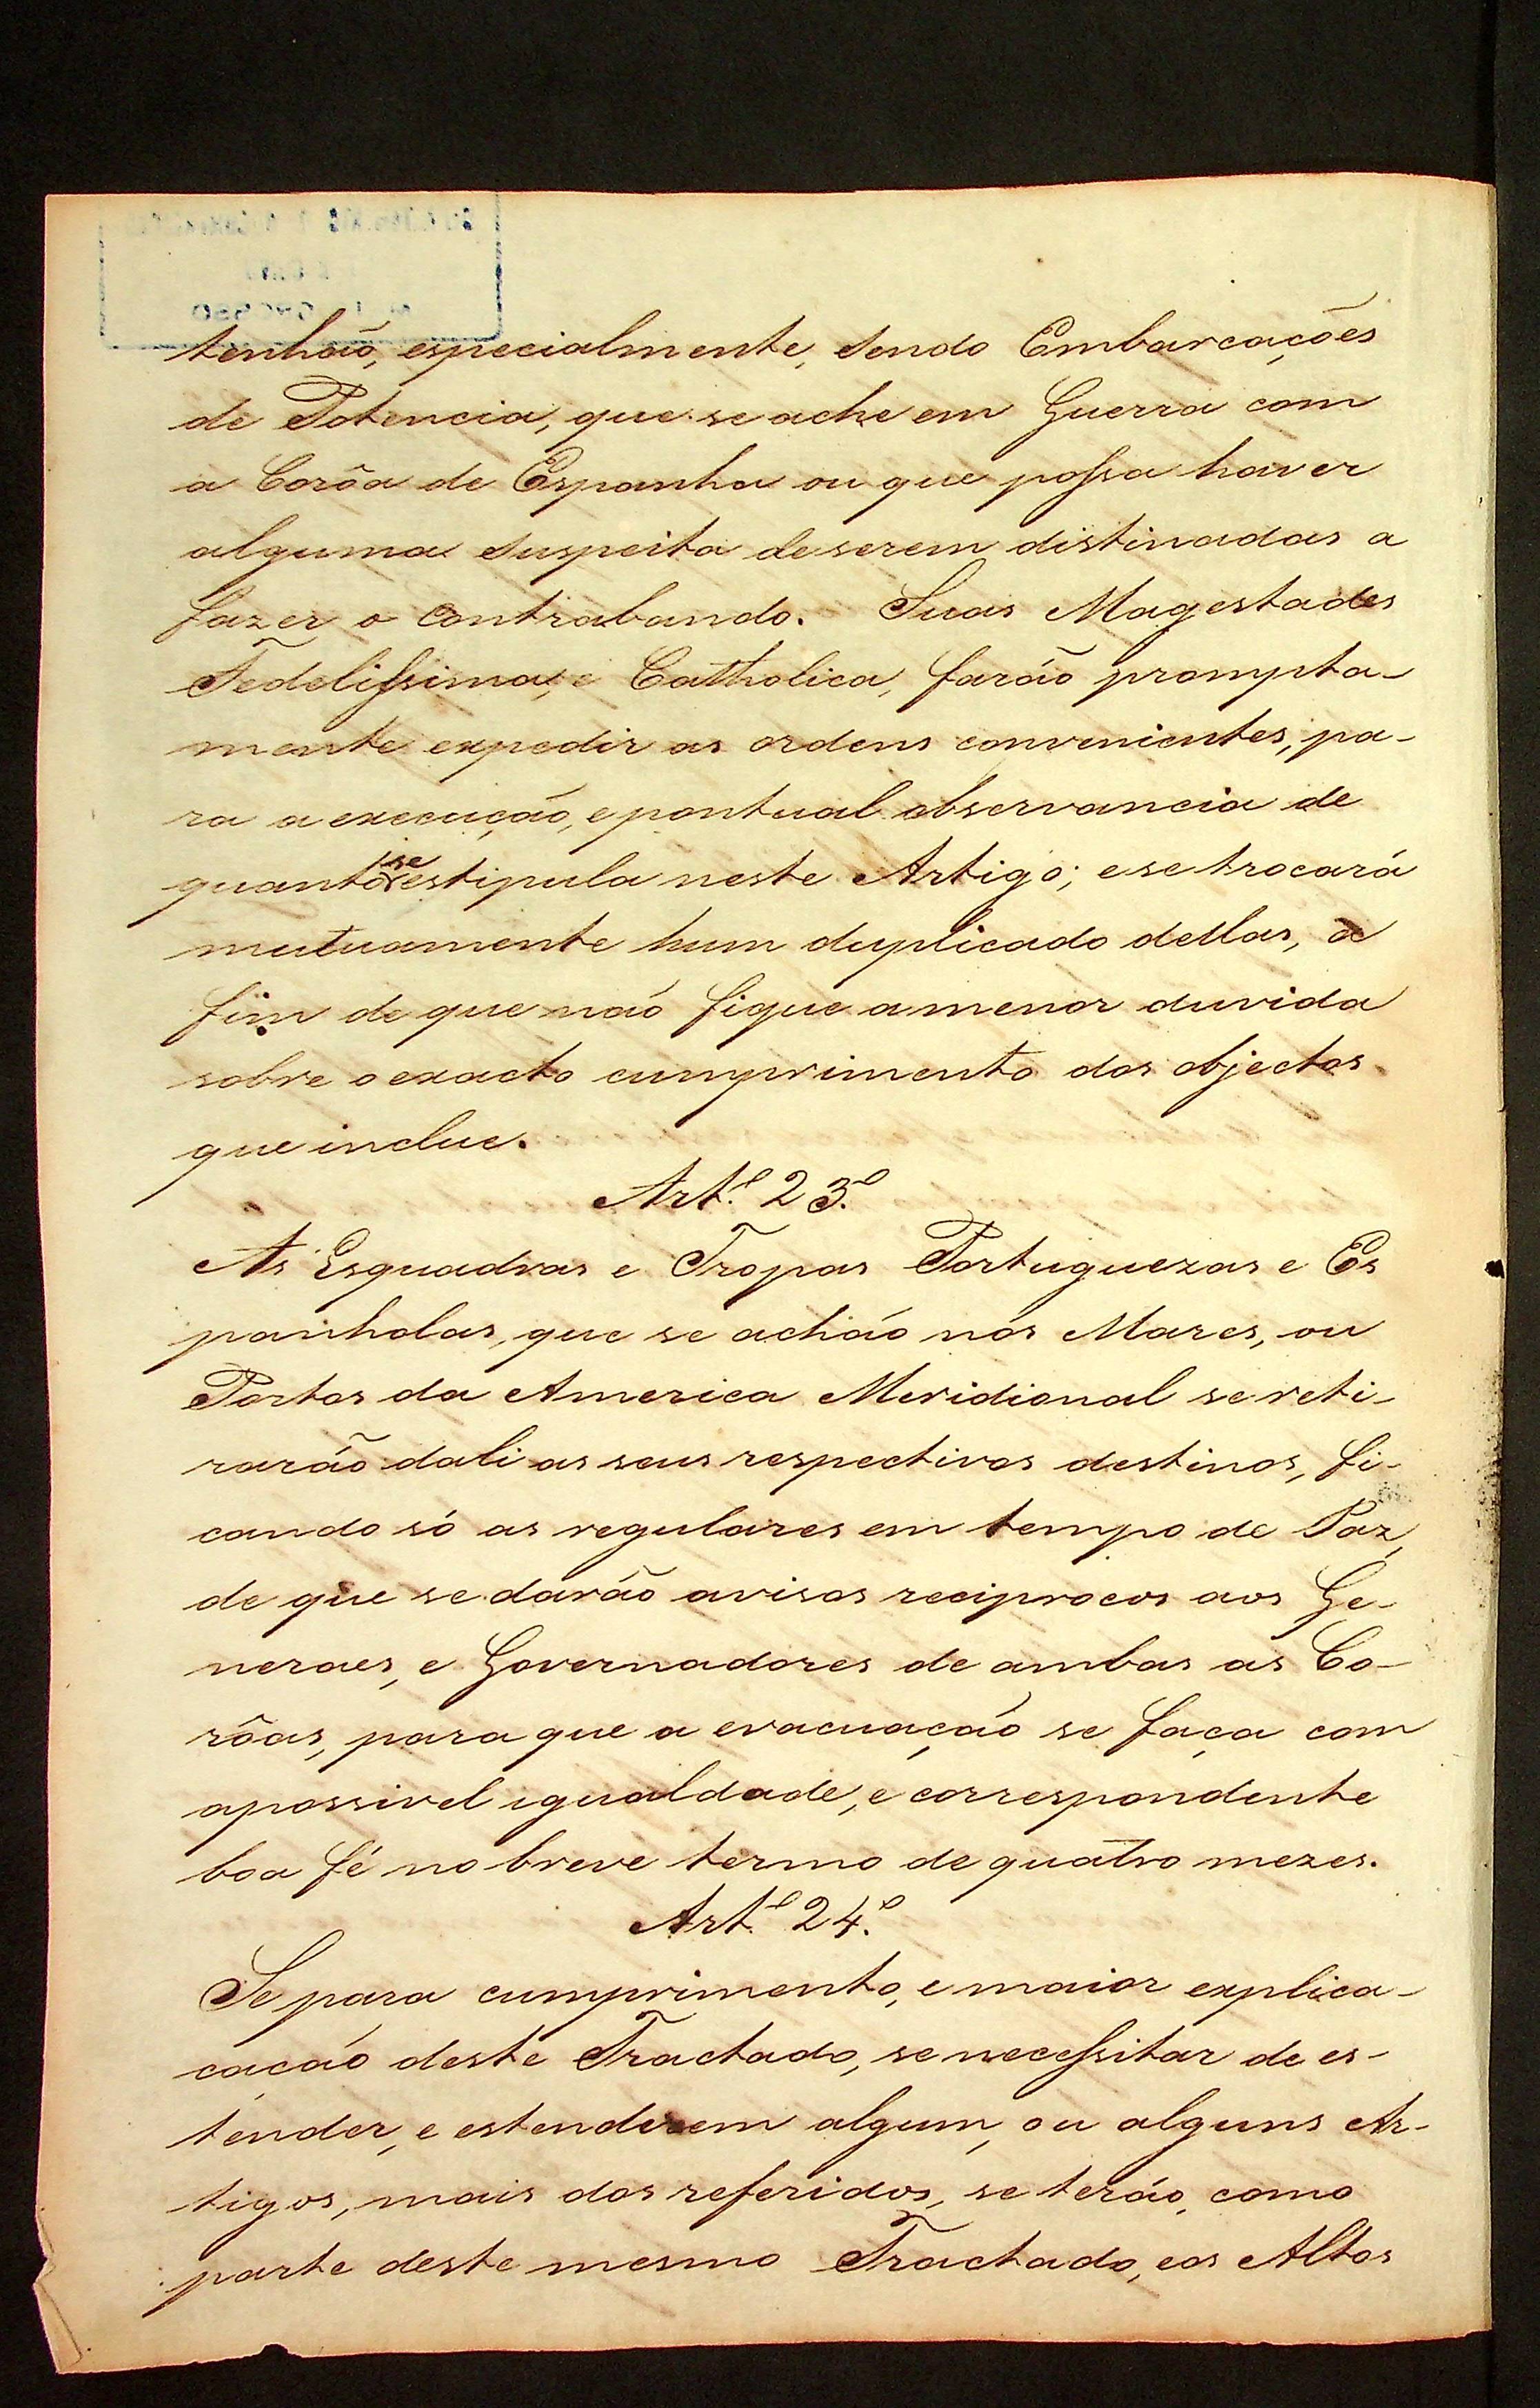 tenhão, especialmente, sendo Embarcações
de Potencia, que se ache em Guerra com
a Corôa de Espanha ou que poſsa haver
alguma suspeita de serem distinadas a
fazer o Contrabando. Suas Magestades
Fedeliſsima, e Catholica, farão prompta-
mente expedir as ordens convenientes, pa-
ra a execução, e pontual observancia de
quanto se estipula neste Artigo; e se trocará
mutuamente hum duplicado dellas, a
fim de que não fique a menor duvida
sobre o exacto cumprimento dos objectos
que inclue.
Art.º 23.º
As Esquadras e Tropas Portuguezas e Es
panholas, que se achão nos Mares, ou
Portos da America Meridional se reti-
rarão dali as seus respectivos destinos, fi-
cando só as regulares em tempo de Paz,
de que se darão avisos reciprocos aos Ge-
neraes, e Governadores de ambas as Co-
rôas, para que a evacuação se faça com
a possivel igualdade, e correspondente
boa fé no breve termo de quatro mezes.
Art.º 24.º
Se para cumprimento, e maior explica-
cação deste Tractado, se neceſsitar de es-
tender, e estenderem algum, ou alguns Ar-
tigos, mais dos referidos, se terão, como
parte deste mesmo Tractado, e os Altos